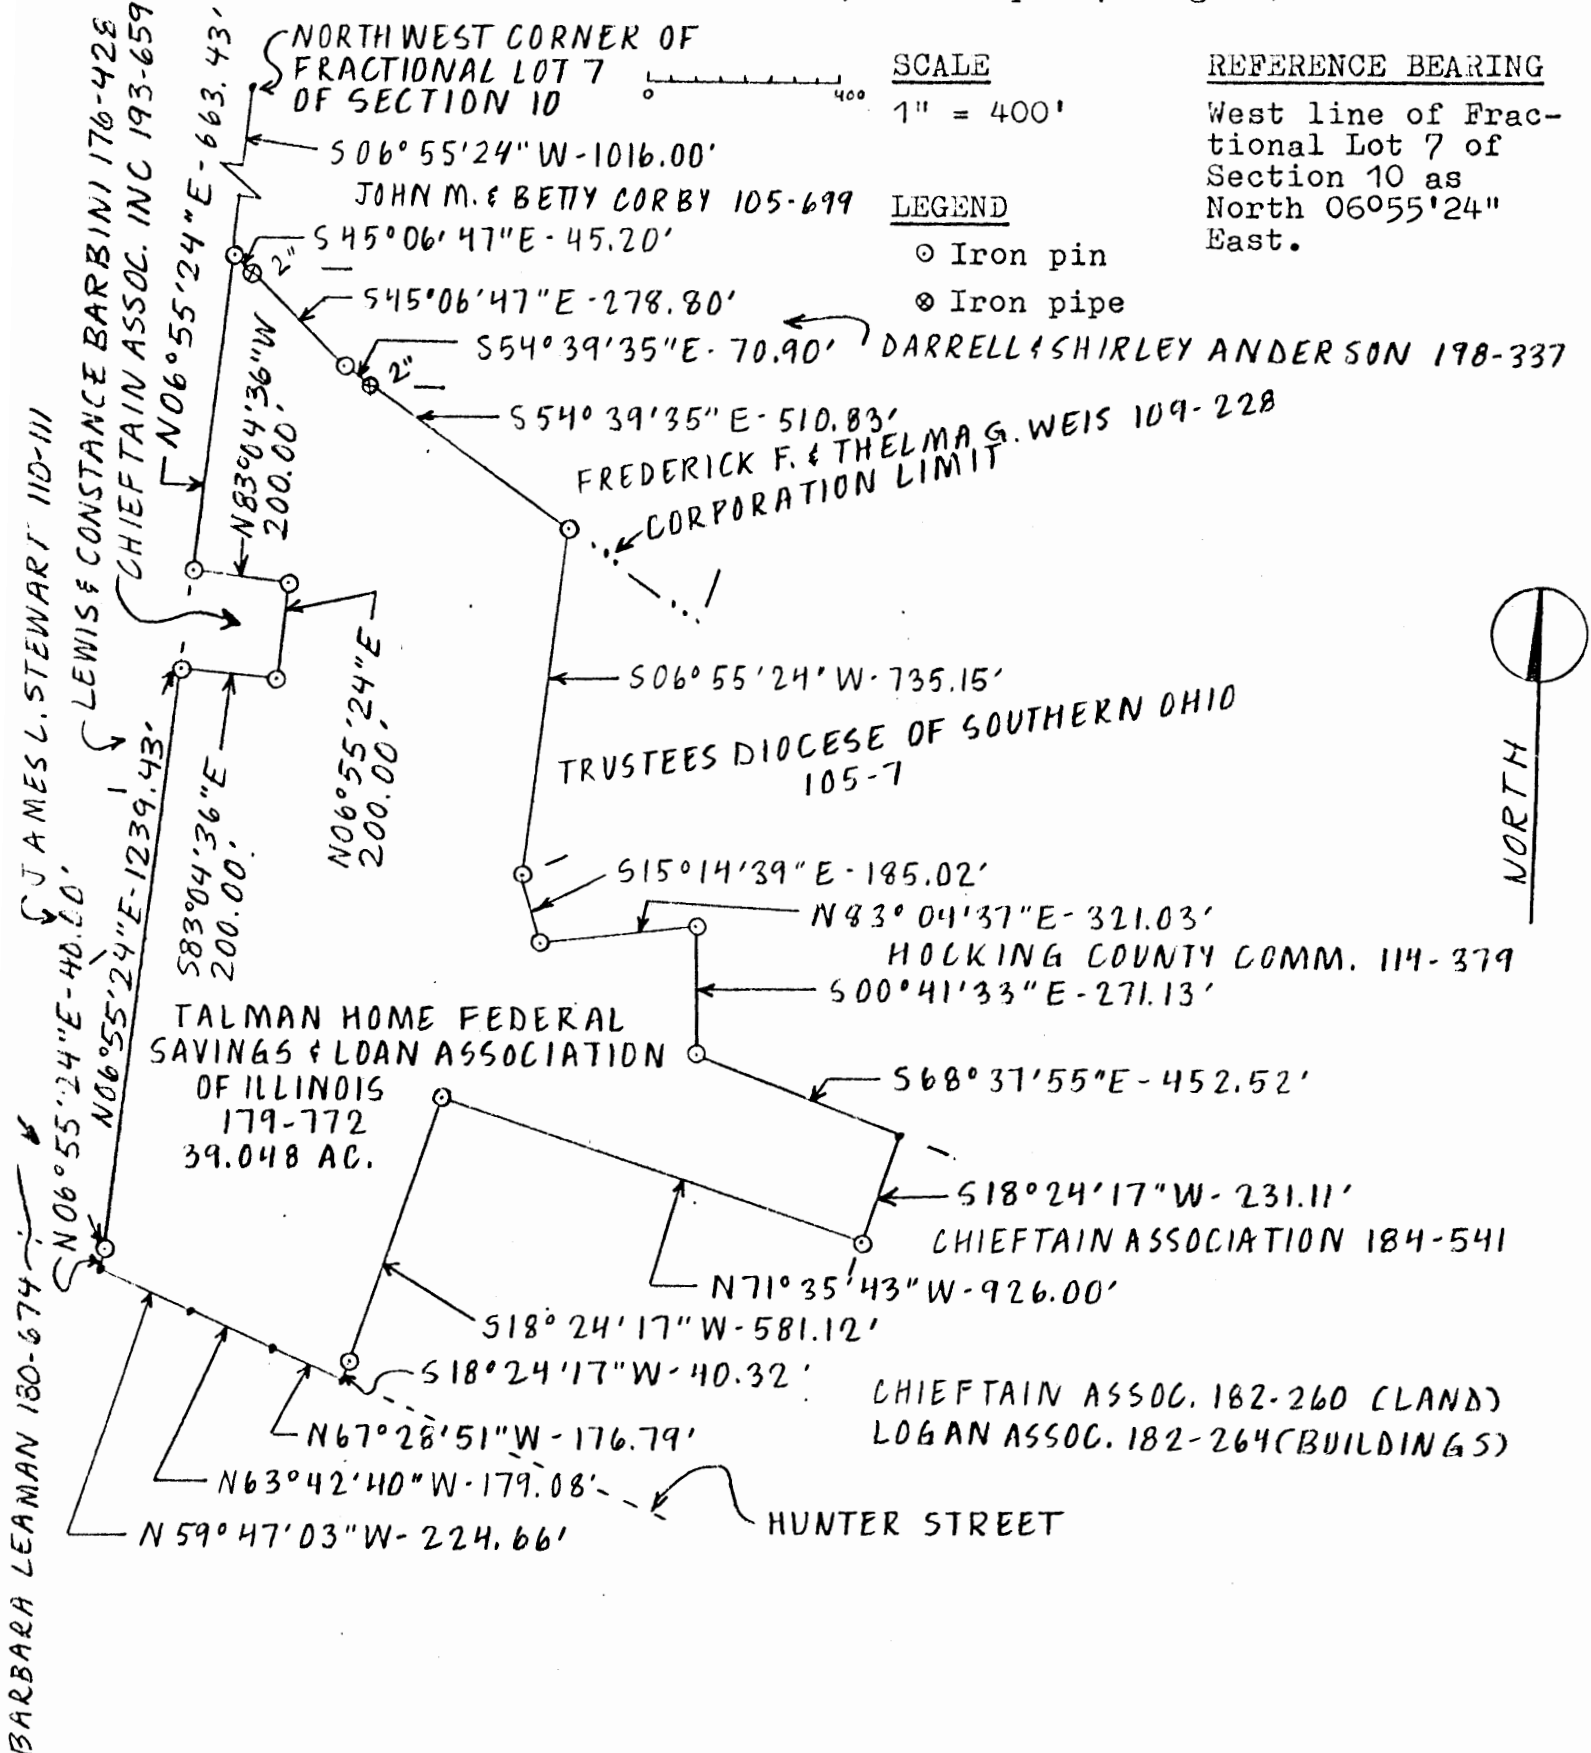 NORTHWEST CORNER OF
FRACTIONAL LOT 7
OF SECTION 10
0 400
SCALE
1" = 400'
REFERENCE BEARING
West line of Frac-
tional Lot 7 of
Section 10 as
North 06°55'24"
East.
LEGEND
⊙ Iron pin
⊗ Iron pipe
S06°55'24"W-1016.00'
JOHN M. & BETTY CORBY 105-699
S45°06'47"E-45.20'
2"
S45°06'47"E-278.80'
S54°39'35"E-70.90'
DARRELL & SHIRLEY ANDERSON 198-337
2"
S54°39'35"E-510.83'
FREDERICK F. & THELMA G. WEIS 109-228
CORPORATION LIMIT
S06°55'24"W-735.15'
TRUSTEES DIOCESE OF SOUTHERN OHIO
105-7
S15°14'39"E-185.02'
N83°04'37"E-321.03'
HOCKING COUNTY COMM. 114-379
S00°41'33"E-271.13'
S68°37'55"E-452.52'
S18°24'17"W-231.11'
CHIEFTAIN ASSOCIATION 184-541
N71°35'43"W-926.00'
S18°24'17"W-581.12'
S18°24'17"W-40.32'
CHIEFTAIN ASSOC. 182-260 (LAND)
LOGAN ASSOC. 182-264 (BUILDINGS)
N67°28'51"W-176.79'
N63°42'40"W-179.08'
N59°47'03"W-224.66'
HUNTER STREET
TALMAN HOME FEDERAL
SAVINGS & LOAN ASSOCIATION
OF ILLINOIS
179-772
39.048 AC.
NORTH
BARBARA LEAMAN 130-674
JAMES L. STEWART 110-111
N06°55'24"E-40.00'
N06°55'24"E-1239.43'
LEWIS & CONSTANCE BARBINI 176-428
CHIEFTAIN ASSOC. INC 193-659
N06°55'24"E-663.43'
S83°04'36"E
200.00'
N06°55'24"E
200.00'
N83°04'36"W
200.00'